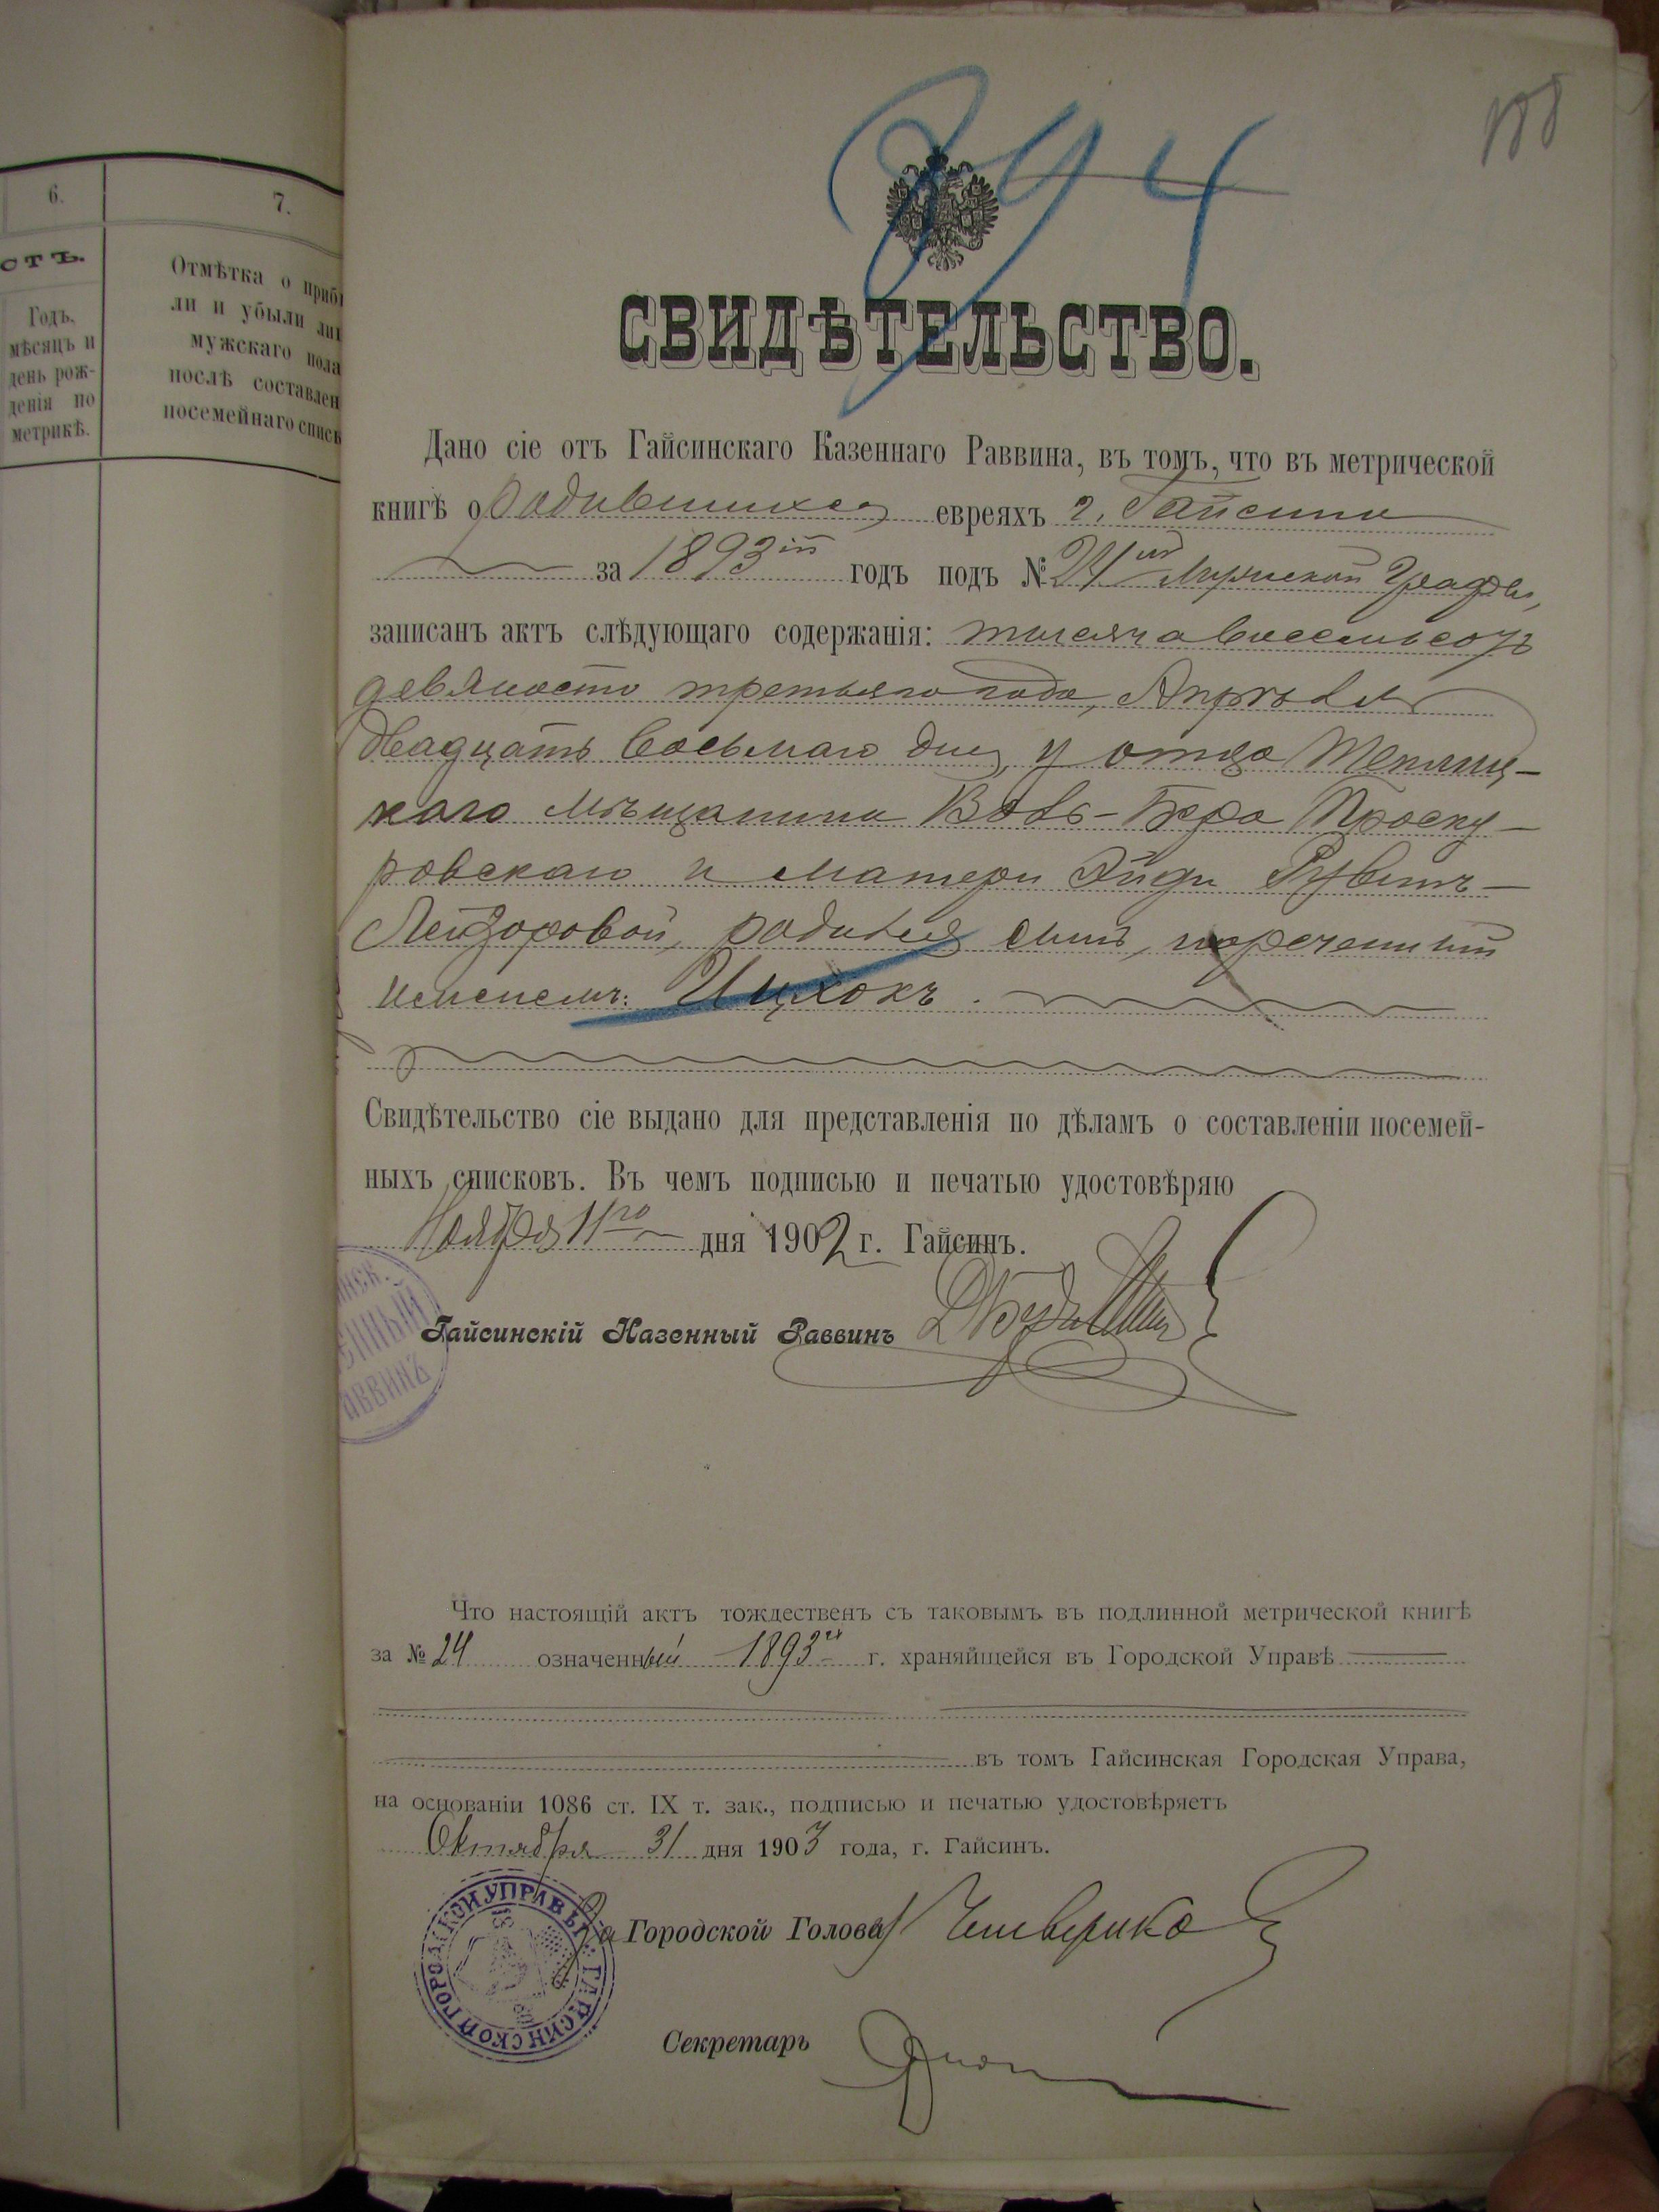 294
188
6.
7.
стъ.
Отмѣтка о приб
ли и убыли ли
мужскаго пола
послѣ составлен
посемейнаго списк
Годъ,
мѣсяцъ и
день рож-
денія по
метрикѣ.
СВИДѢТЕЛЬСТВО.
Дано сіе отъ Гайсинскаго Казеннаго Раввина, въ томъ, что въ метрической
книгѣ о родившихся евреяхъ г. Гайсина
за 1893ій годъ подъ № 24 мужской графы,
записанъ актъ слѣдующаго содержанія: тысяча восемьсотъ
девяносто третьяго года, Апрѣля
двадцать восьмаго дня, у отца Теплиц-
каго мѣщанина Вовъ-Бера Проску-
ровскаго и матери Эйди Рувинъ-
Лейзоровой, родился сынъ, нареченный
именемъ: Ицхокъ.
Свидѣтельство сіе выдано для представленія по дѣламъ о составленіи посемей-
ныхъ списковъ. Въ чемъ подписью и печатью удостовѣряю
Ноября 11го дня 1902 г. Гайсинъ.
инск.
ЕННЫЙ
АВВИНЪ
Гайсинскій Казенный Раввинъ
Что настоящій актъ тождественъ съ таковымъ въ подлинной метрической книгѣ
за № 24 означенный 1893 г. храняйщейся въ Городской Управѣ
въ томъ Гайсинская Городская Управа,
на основаніи 1086 ст. IX т. зак., подписью и печатью удостовѣряетъ
Октября 31 дня 1903 года, г. Гайсинъ.
ГАЙСИНСКОЙ ГОРОДСКОЙ УПРАВЫ
За Городской Головы Чемверико
Секретарь